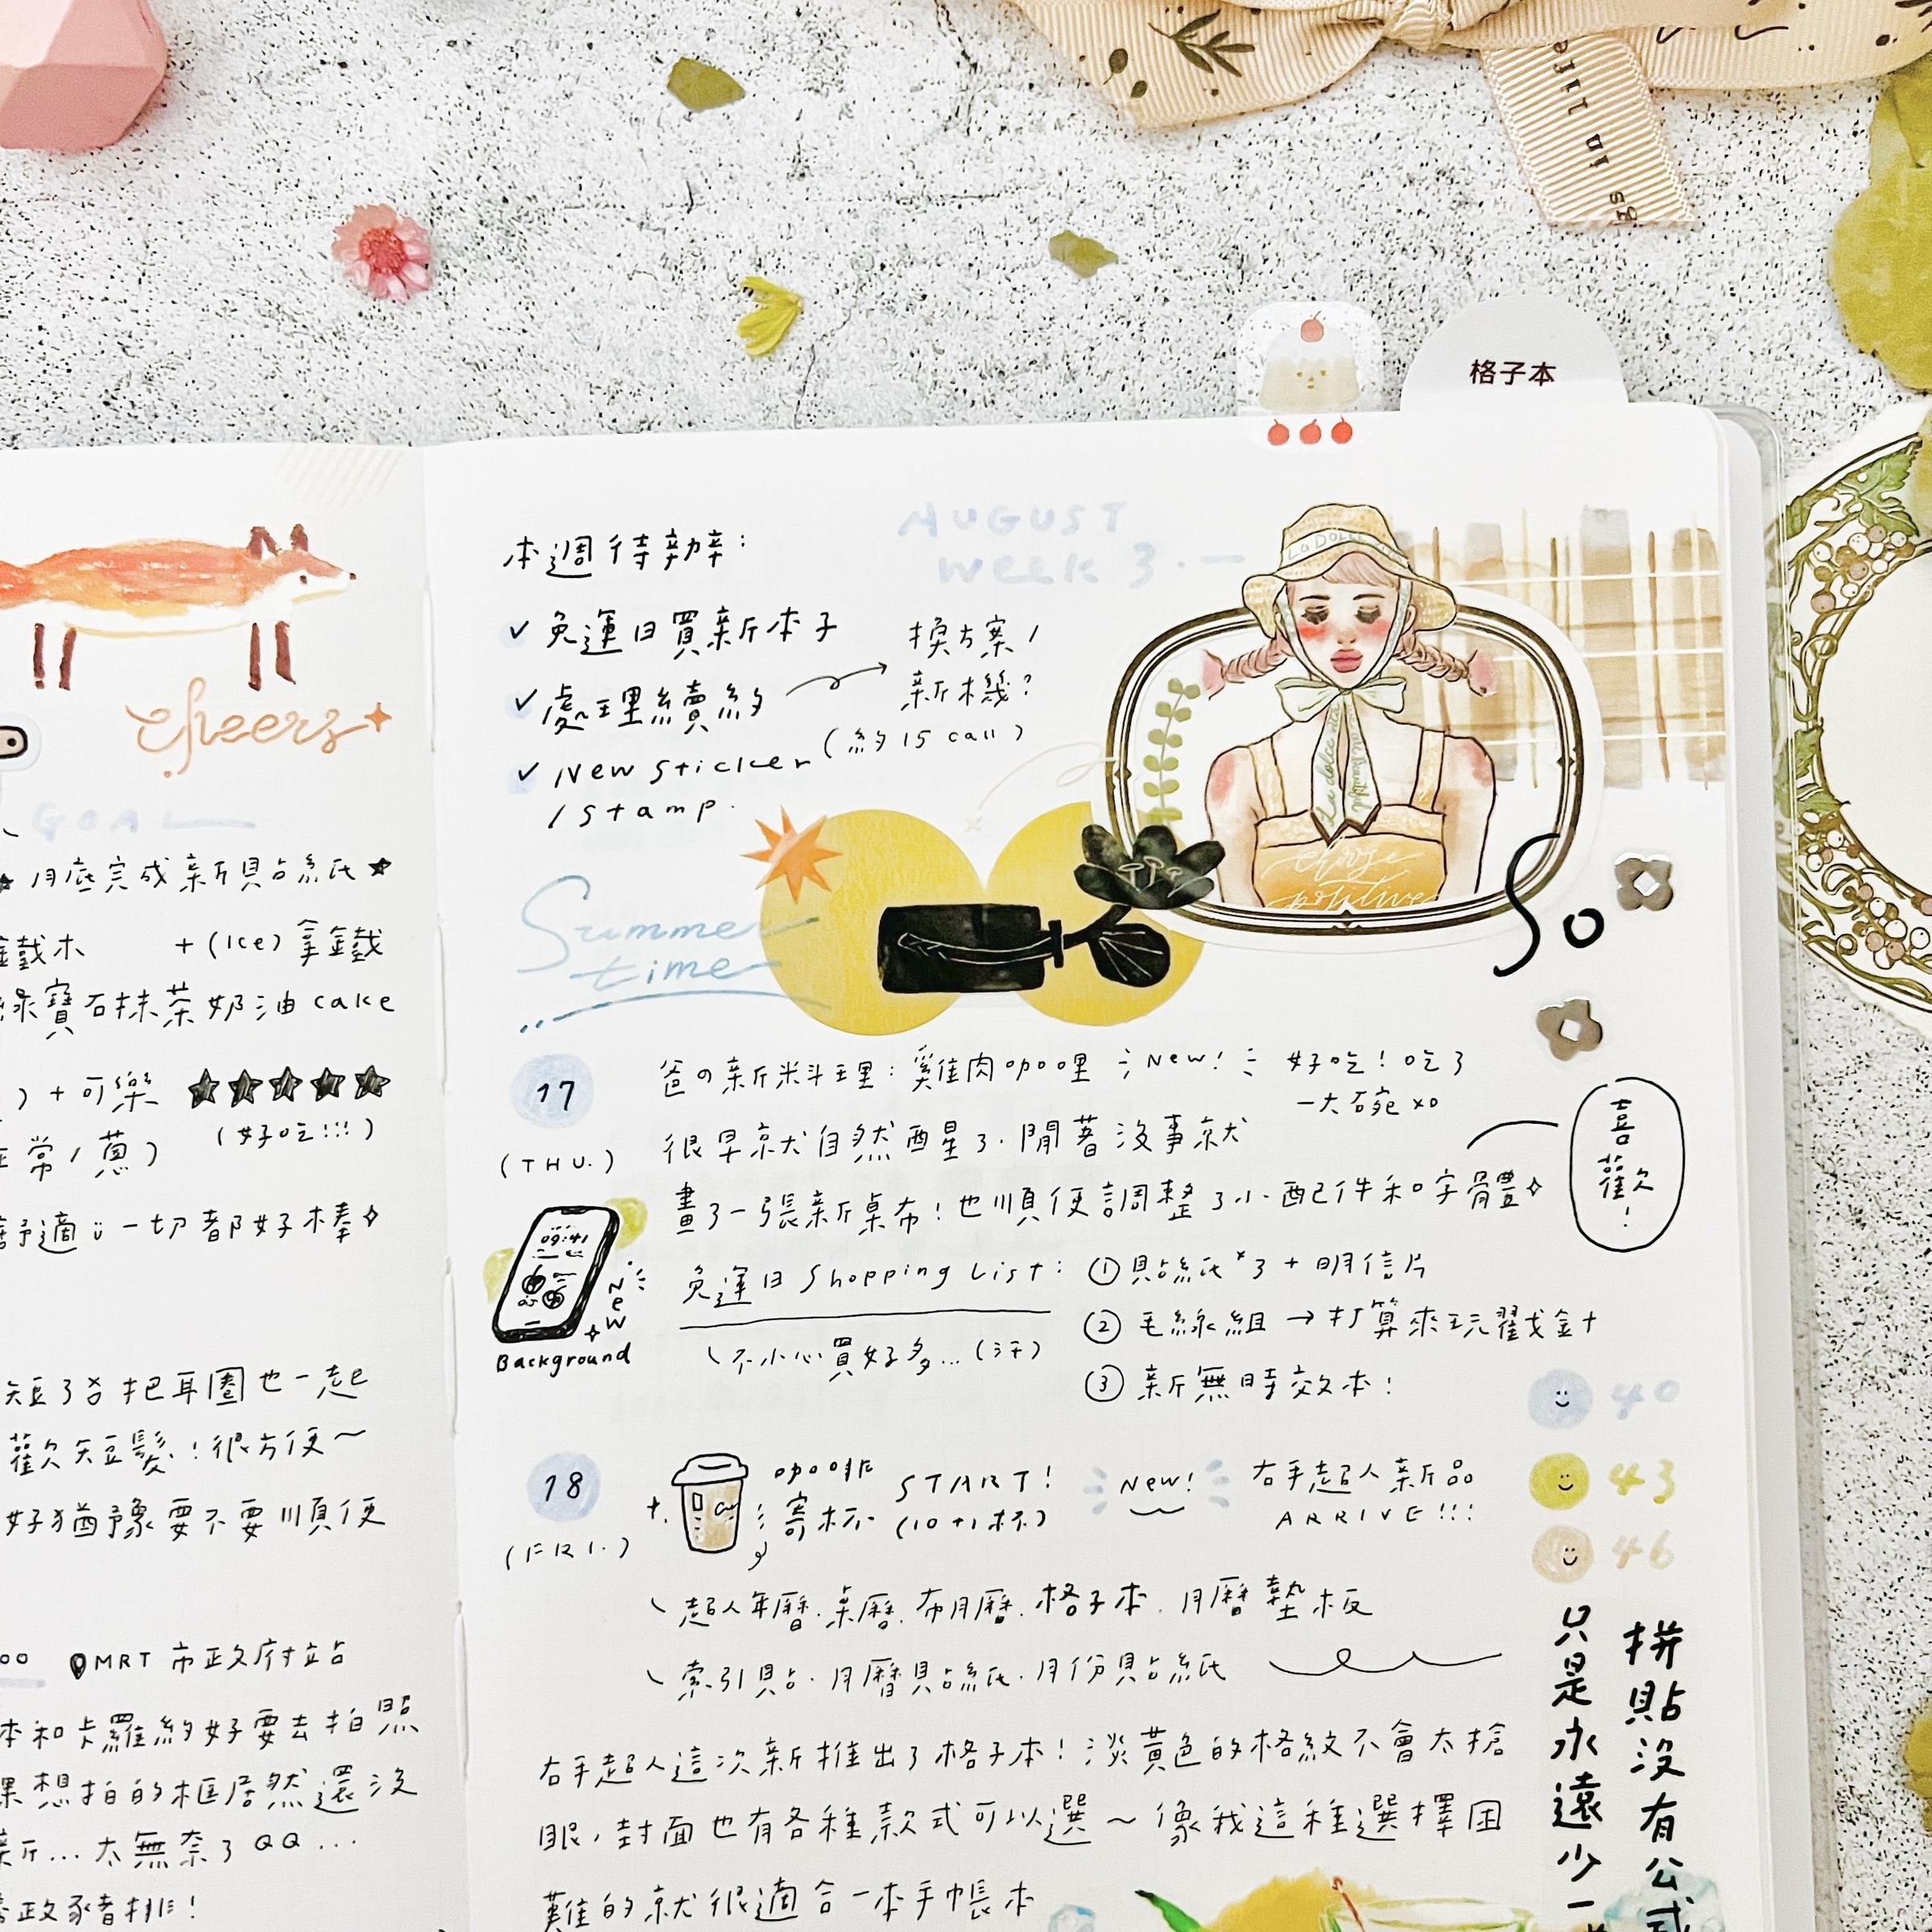 in life
格子本
cheers
GOAL
月底完成新貼紙
+(Ice)拿鐵
寶石抹茶奶油cake
)+可樂 ★★★★★
(好吃!!!)
常/蔥)
舒適ü一切都好棒
短了后把耳圈也一起
歡短髮!很方便～
好猶豫要不要順便
MRT 市政府站
本和卡羅約好要去拍照
果想拍的框居然還沒
新...太無奈了QQ...
豬排!
AUGUST
week 3.—
本週待辦:
✓ 免運日買新本子
✓ 處理續約
換方案/
新機?
(約15 call)
✓ New sticker
/stamp.
LA DOLCE
choose
positive
Summer
time
So
17
(THU.)
爸の新料理:雞肉咖哩 New! 好吃!吃了
一大碗xo
很早就自然醒了.閒著沒事就
畫了一張新桌布!也順便調整了小配件和字體
喜歡!
09:41
New
Background
免運日 Shopping List:
不小心買好多...(汗)
① 貼紙*3+明信片
② 毛線組→打算來玩戳戳針
③ 新無時效本!
40
43
46
18
(FRI.)
咖啡 START!
寄杯 (10+1杯)
New!
右手超人新品
ARRIVE!!!
超人年曆.桌曆.布月曆.格子本.月曆墊板
索引貼.月曆貼紙.月份貼紙
右手超人這次新推出了格子本!淡黃色的格紋不會太搶
眼,封面也有各種款式可以選～像我這種選擇困
難的就很適合一本手帳本
拼貼沒有公式
只是永遠少一